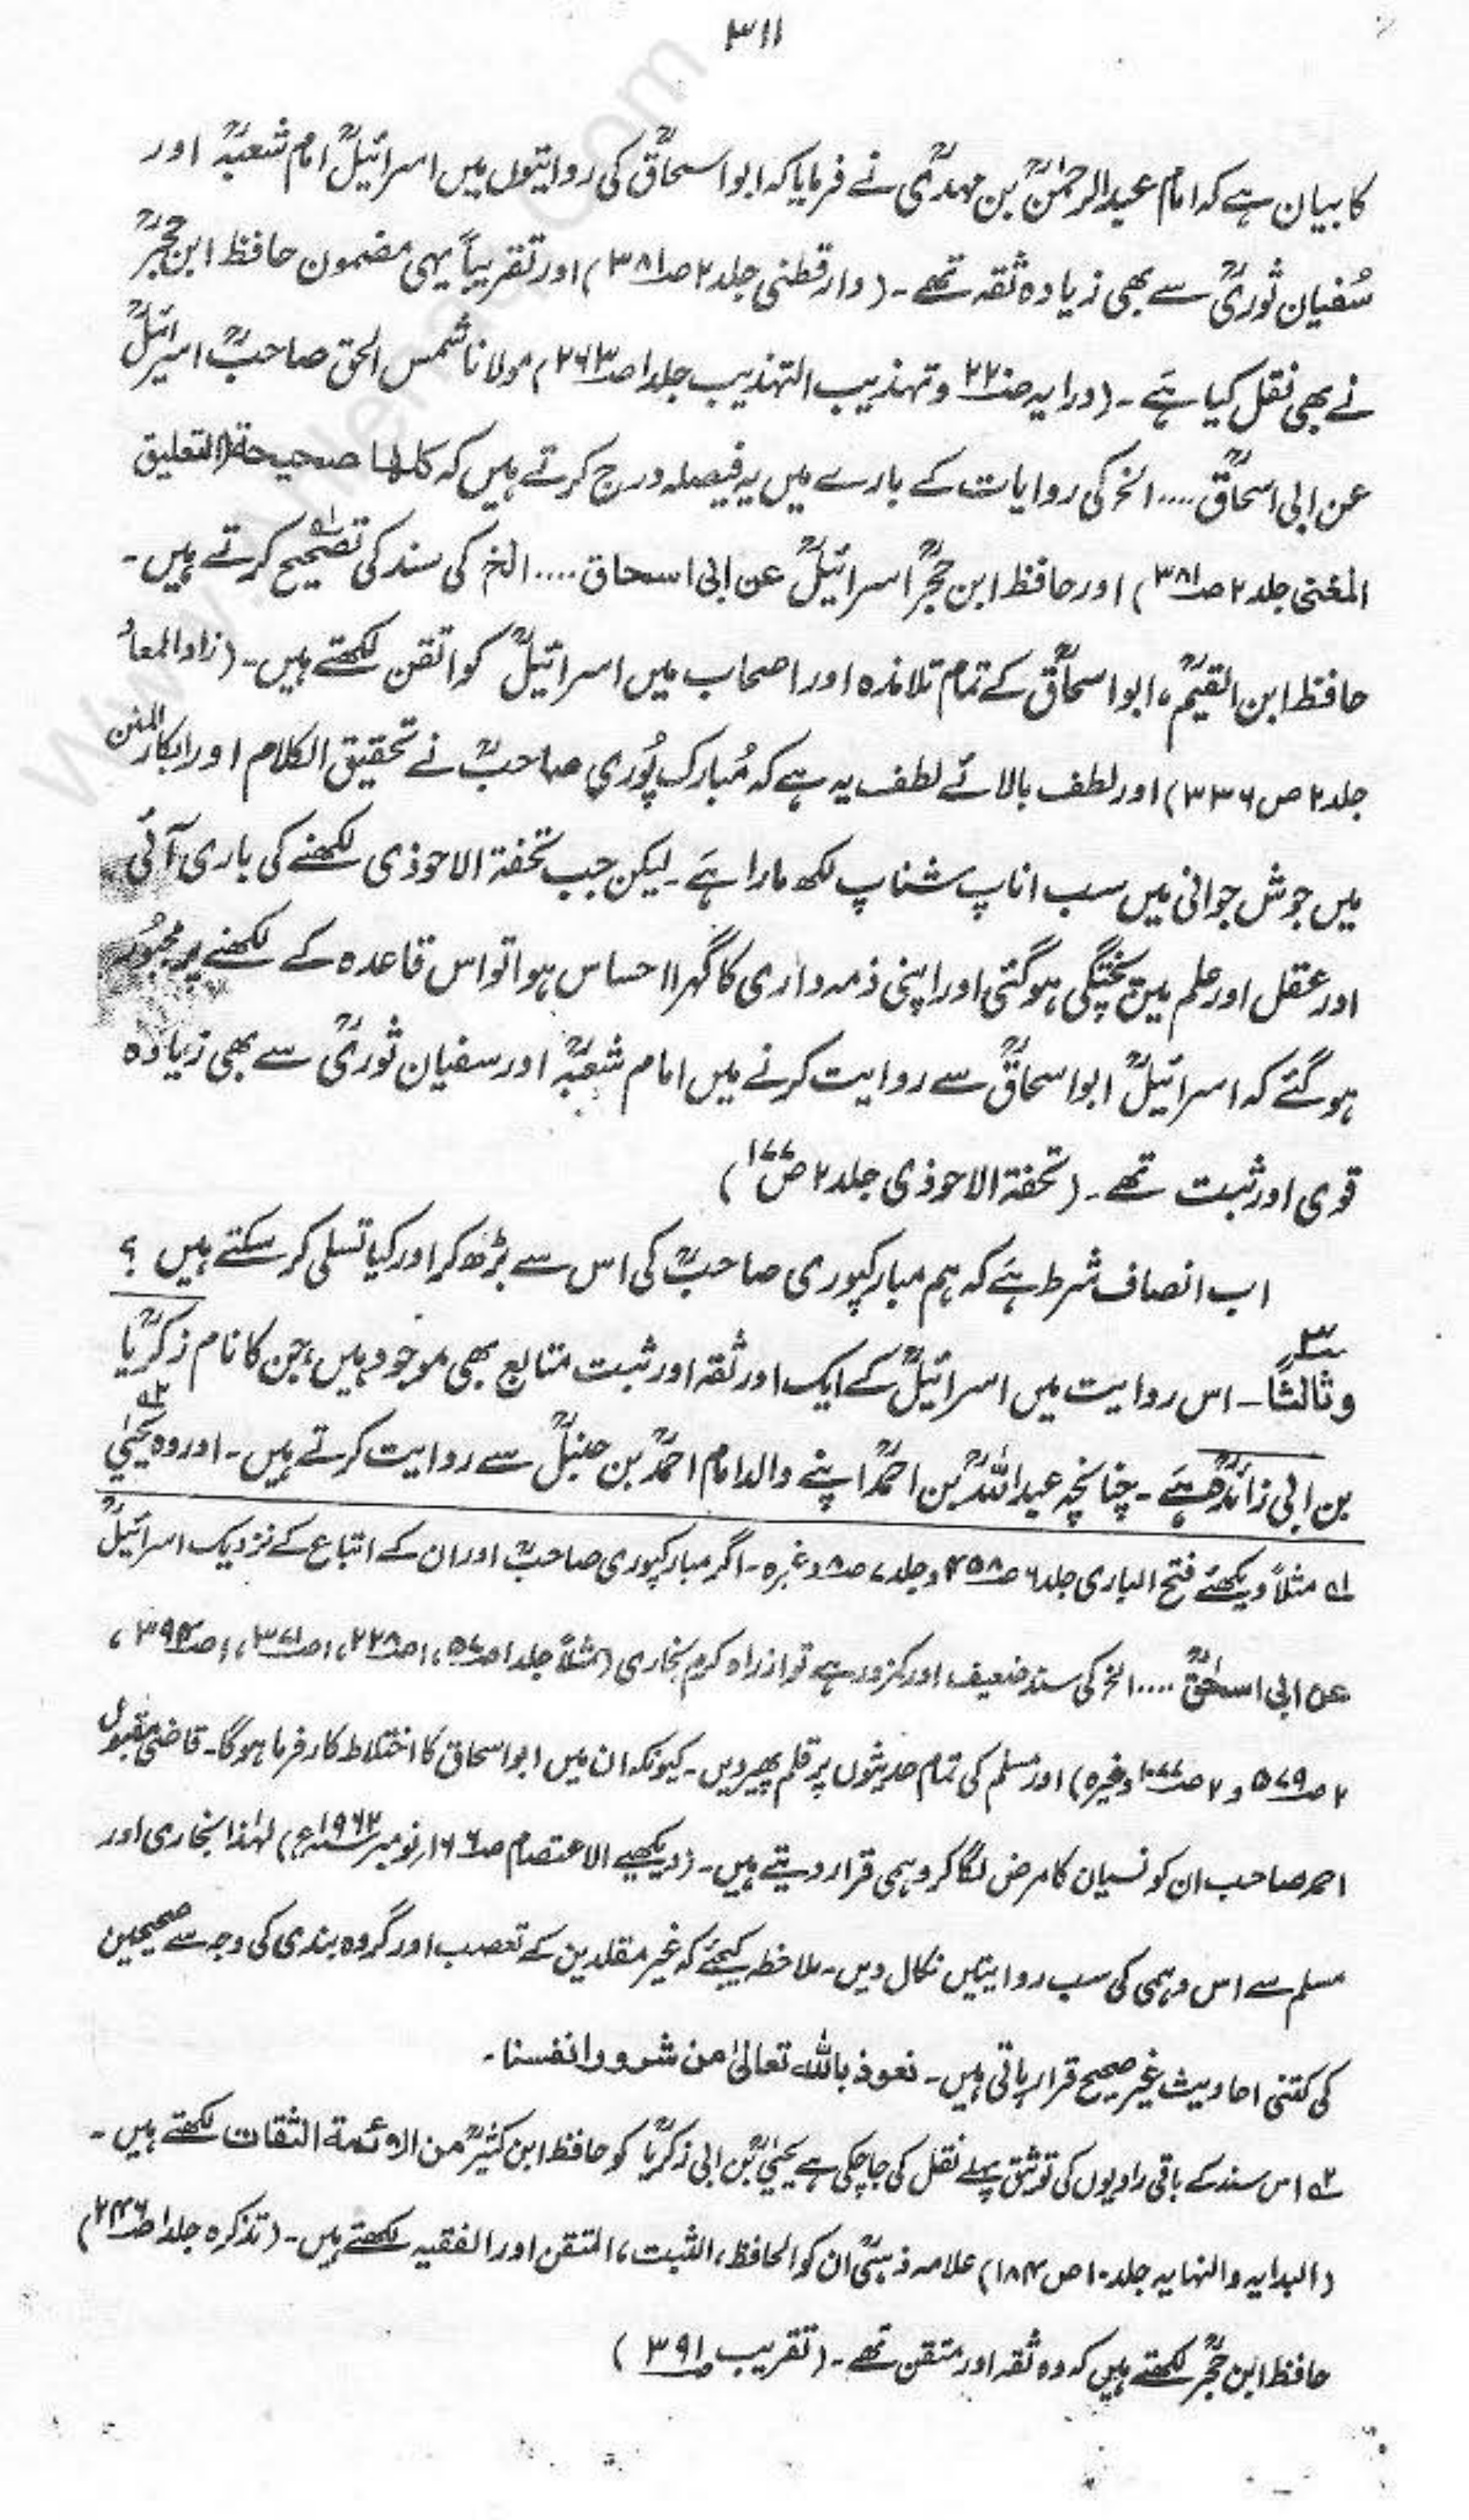 ۳۱۱
کا بیان ہے کہ امام عبدالرحمٰنؒ بن مہدیؒ نے فرمایا کہ ابو اسحاقؒ کی روایتوں میں اسرائیلؒ امام شعبہؒ اور
سُفیان ثوریؒ سے بھی زیادہ ثقہ تھے۔ (دارقطنی جلد ۲ صـ۳۸۱) اور تقریباً یہی مضمون حافظ ابن حجرؒ
نے بھی نقل کیا ہَے۔ (درایہ صـ۲۲۰ و تہذیب التہذیب جلد ۱ صـ۲۶۳) مولانا شمس الحق صاحبؒ اسرائیلؒ
عن ابی اسحاقؒ .... الخ کی روایات کے بارے میں یہ فیصلہ درج کرتے ہیں کہ کلہا صحیحۃ (التعلیق
المغنی جلد ۲ صـ۳۸۱) اور حافظ ابن حجرؒ اسرائیلؒ عن ابی اسحاق .... الخ کی سند کی تصحیح کرتے ہیں۔ لـہ۱
حافظ ابن القیمؒ، ابو اسحاقؒ کے تمام تلامذہ اور اصحاب میں اسرائیلؒ کو اتقن لکھتے ہیں۔ (زاد المعاد
جلد ۲ ص ۳۳۶) اور لطف بالائے لطف یہ ہے کہ مُبارک پُوری صاحبؒ نے تحقیق الکلام اور ابکار المنن
میں جوش جوانی میں سب اناپ شناپ لکھ مارا ہَے۔ لیکن جب تحفۃ الاحوذی لکھنے کی باری آئی
اور عقل اور علم میں پختگی ہوگئی اور اپنی ذمہ داری کا گہرا احساس ہوا تو اس قاعدہ کے لکھنے پر مجبُور
ہو گئے کہ اسرائیلؒ ابو اسحاقؒ سے روایت کرنے میں امام شعبہؒ اور سفیان ثوریؒ سے بھی زیادہ
قوی اور ثبت تھے۔ (تحفۃ الاحوذی جلد ۲ صـ۱۷۷)
اب انصاف شرط ہَے کہ ہم مبارکپوری صاحبؒ کی اس سے بڑھ کر اور کیا تسلی کر سکتے ہیں ؟
وثالثاً۔ اس روایت میں اسرائیلؒ کے ایک اور ثقہ اور ثبت متابع بھی موجود ہیں، جن کا نام زکریاؒ
بن ابی زائدہؒ ہَے۔ چنانچہ عبداللہؒ بن احمدؒ اپنے والد امام احمدؒ بن حنبلؒ سے روایت کرتے ہیں۔ اور وہ یحییٰ لـہ۲
لـہ۱ مثلاً دیکھئے فتح الباری جلد ۶ صـ۴۵۸ و جلد ۷ صـ۸ وغیرہ۔ اگر مبارکپوری صاحبؒ اور ان کے اتباع کے نزدیک اسرائیلؒ
عن ابی اسحٰقؒ .... الخ کی سند ضعیف اور کمزور ہے تو ازراہ کرم بخاری (مثلاً جلد ۱ صـ۵۷، ۱ صـ۲۲۸، ۱ صـ۳۷۱، ۱ صـ۳۹۴،
۲ صـ۵۷۹ و ۲ وغیرہ) اور مسلم کی تمام حدیثوں پر قلم پھیر دیں۔ کیونکہ ان میں ابو اسحاق کا اختلاط کارفرما ہوگا۔ قاضی مقبول
احمد صاحب ان کو نسیان کا مرض لگا کر وہمی قرار دیتے ہیں۔ (دیکھیے الاعتصام نومبر ۱۹۶۲ء) لہٰذا بخاری اور
مسلم سے اس وہمی کی سب روایتیں نکال دیں۔ ملاحظہ کیجئے کہ غیر مقلدین کے تعصب اور گروہ بندی کی وجہ سے صحیحین
کی کتنی احادیث غیر صحیح قرار پاتی ہیں۔ نعوذ باللہ تعالیٰ من شرور انفسنا۔
لـہ۲ اس سند کے باقی راویوں کی توثیق پہلے نقل کی جا چکی ہے یحییٰؒ بن ابی زکریاؒ کو حافظ ابن کثیرؒ من الائمۃ الثقات لکھتے ہیں۔
(البدایہ والنہایہ جلد ۱۰ ص ۱۸۴) علامہ ذہبیؒ ان کو الحافظ، الثبت، المتقن اور الفقیہ لکھتے ہیں۔ (تذکرہ جلد ۱ صـ۲۴۶)
حافظ ابن حجرؒ لکھتے ہیں کہ وہ ثقہ اور متقن تھے۔ (تقریب صـ۳۹۱)